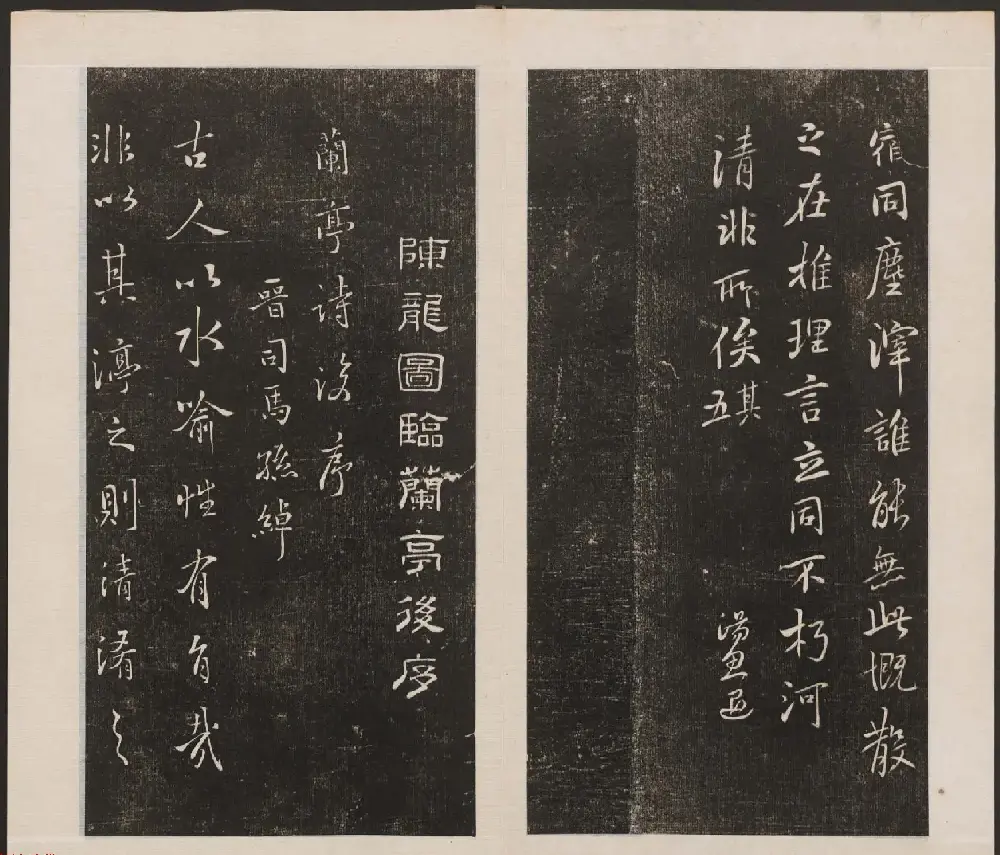 宿同塵滓誰能無此慨散
之在推理言立同不朽河
清非所俟其五
陳龍圖臨蘭亭後序
蘭亭詩後序
晉司馬孫綽
古人以水喻性有旨哉
非以其渟之則清淆之